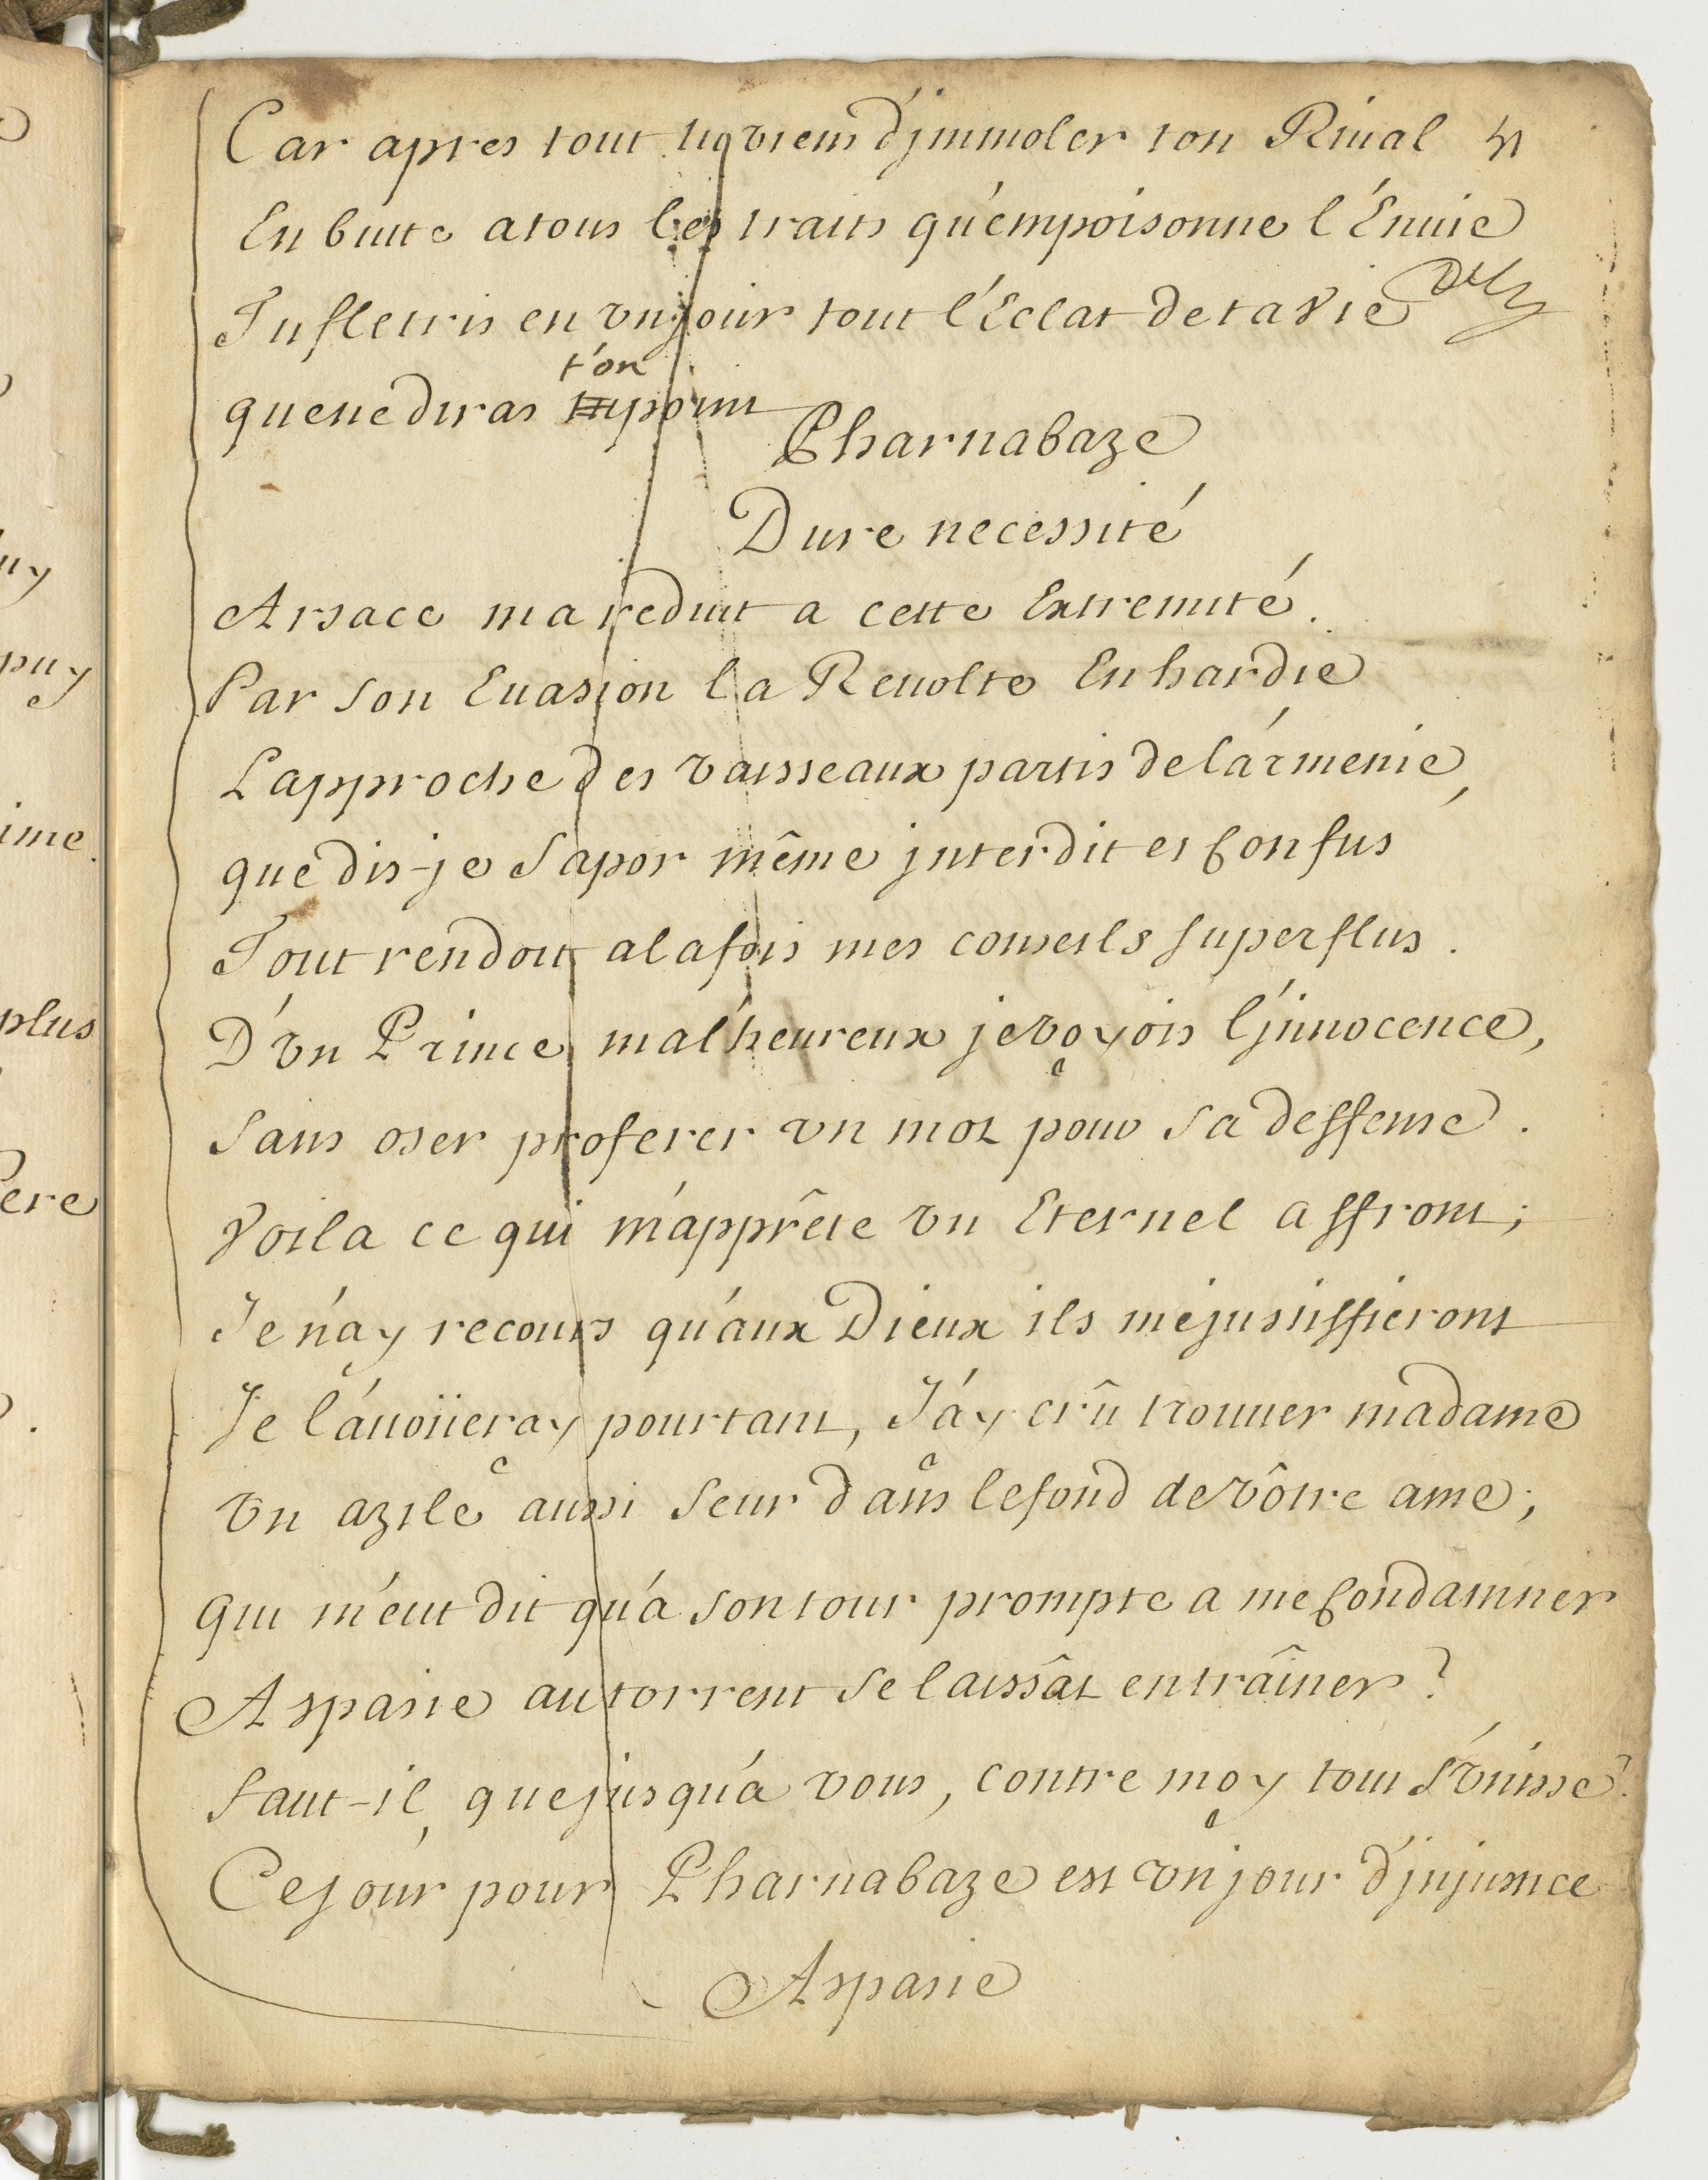 Car apres tout tu viens d'jmmoler ton Riual
En butte a tous les traits qu'empoisonne l'Enuie
Tu fletris en vn jour tout l'Eclat de ta vie
t'on
que ne diras point
Pharnabaze
Dure necessité
Arsace ma reduit a cette Extremité.
Par son Euasion la Reuolte Enhardie
L'approche des vaisseaux partis de l'armenie,
que dis-je Sapor même jnterdit et Confus
Tout rendoit a la fois mes conseils superflus.
D'vn Prince malheureux je voyois l'jnnocence,
Sans oser proferer vn mot pour sa deffense.
Voila ce qui m'apprête vn Eternel affront;
Je n'ay recours qu'aux Dieux ils me justiffieront
Je l'auoüeray pourtant, J'ay crû trouuer madame
vn azile aussi seur dans le fond de vôtre ame;
Qui m'eut dit qu'a son tour prompte a me Condamner
Aspasie au torrent se laissât entraîner?
faut-il, que jusqu'a vous, contre moy tout s'vnisse?
Ce jour pour Pharnabaze est vn jour d'jnjustice
Aspasie
uy
puy
ime.
plus
Pere